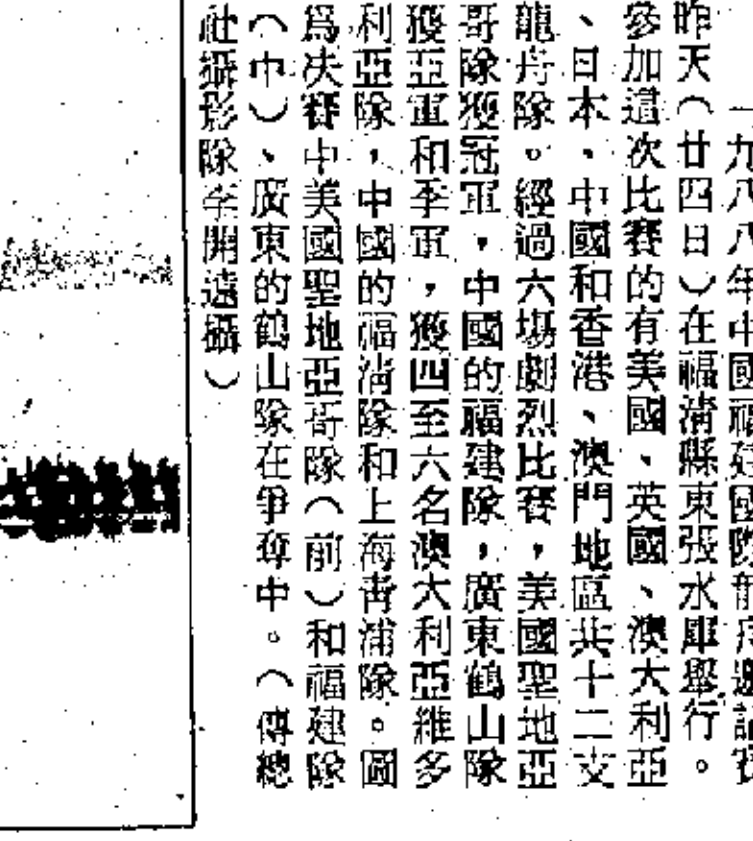 一九八八年中國福建國際龍舟邀請賽
昨天（廿四日）在福清縣東張水庫舉行。
參加這次比賽的有美國、英國、澳大利亞
、日本、中國和香港、澳門地區共十二支
龍舟隊。經過六場劇烈比賽，美國聖地亞
哥隊獲冠軍，中國的福建隊，廣東鶴山隊
獲亞軍和季軍，獲四至六名澳大利亞維多
利亞隊，中國的福清隊和上海青浦隊。圖
爲决賽中美國聖地亞哥隊（前）和福建隊
（中）、廣東的鶴山隊在爭奪中。（傳總
社攝影隊李開遠攝）